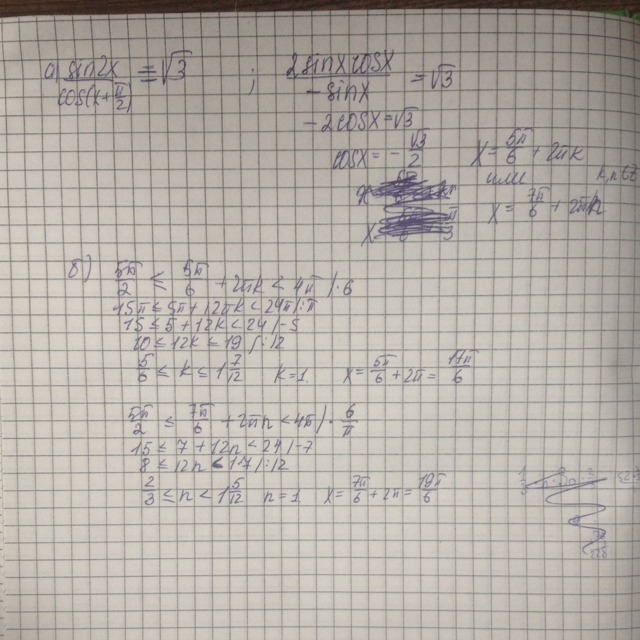 а) sin2x / cos(x+π/2) = √3 ; 2sinxcosx / -sinx = √3
-2cosx = √3
cosx = -√3/2 x = 5π/6 + 2πk
или k,n∈Z
x = 7π/6 + 2πn
б) 5π/2 ≤ 5π/6 + 2πk < 4π /·6
15π ≤ 5π + 12πk < 24π /:π
15 ≤ 5 + 12k < 24 /-5
10 ≤ 12k ≤ 19 /:12
5/6 ≤ k ≤ 1 7/12 k=1 x = 5π/6 + 2π = 17π/6
5π/2 ≤ 7π/6 + 2πn < 4π /· 6/π
15 ≤ 7 + 12n < 24 /-7
8 ≤ 12n < 17 /:12
2/3 ≤ n < 1 5/12 n=1 x = 7π/6 + 2π = 19π/6